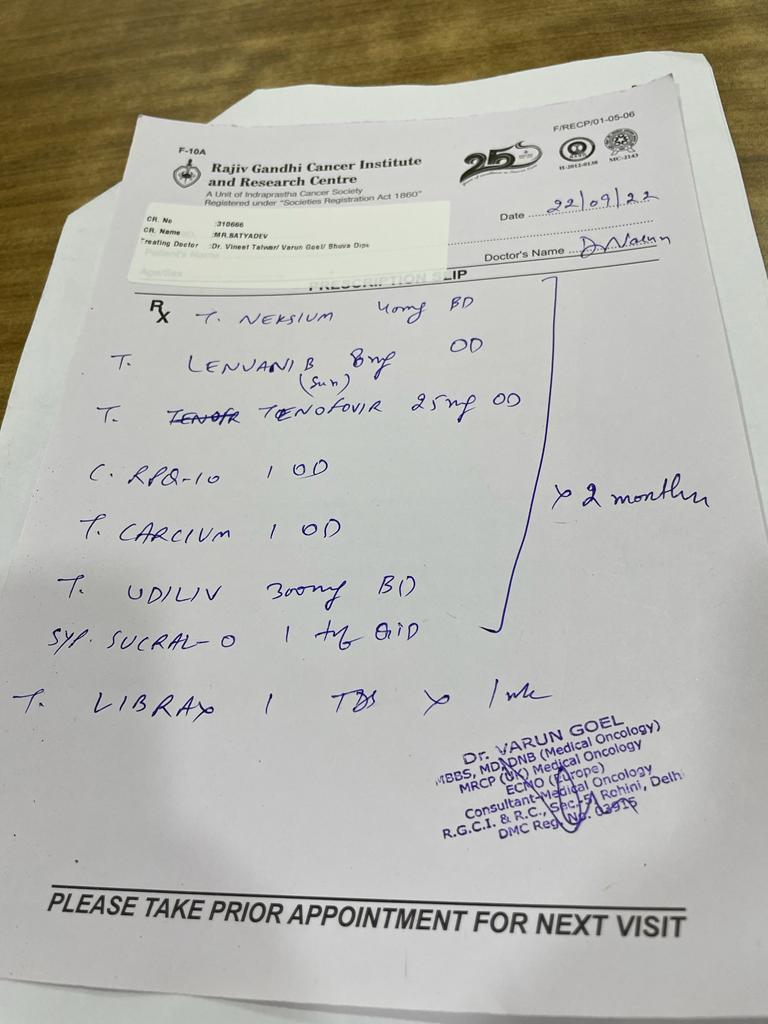 F/RECP/01-05-06
F-10A
Rajiv Gandhi Cancer Institute
and Research Centre
A Unit of Indraprastha Cancer Society
Registered under "Societies Registration Act 1860"
25
H-2012-0138
MC-2143
CR. No :310666
CR. Name :MR.SATYADEV
Treating Doctor :Dr. Vineet Talwar/ Varun Goel/ Bhuva Dipa
Date 22/09/22
Doctor's Name Dr Varun
PRESCRIPTION SLIP
Rx T. NEKSIUM 40mg BD
T. LENVANIB 8mg OD
(Sun)
T. TENOFOVIR 25mg OD
C. RPQ-10 1 OD
x 2 months
T. CARCIUM 1 OD
T. UDILIV 300mg BD
SYP. SUCRAL-O 1 QID
T. LIBRAX 1 TDS x 1 wk
Dr. VARUN GOEL
MBBS, MD, DNB (Medical Oncology)
MRCP (UK) Medical Oncology
ECMO (Europe)
Consultant-Medical Oncology
R.G.C.I. & R.C., Sec.-5, Rohini, Delhi
DMC Reg. No. 03915
PLEASE TAKE PRIOR APPOINTMENT FOR NEXT VISIT